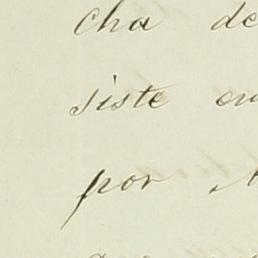 cha de
siste en
por